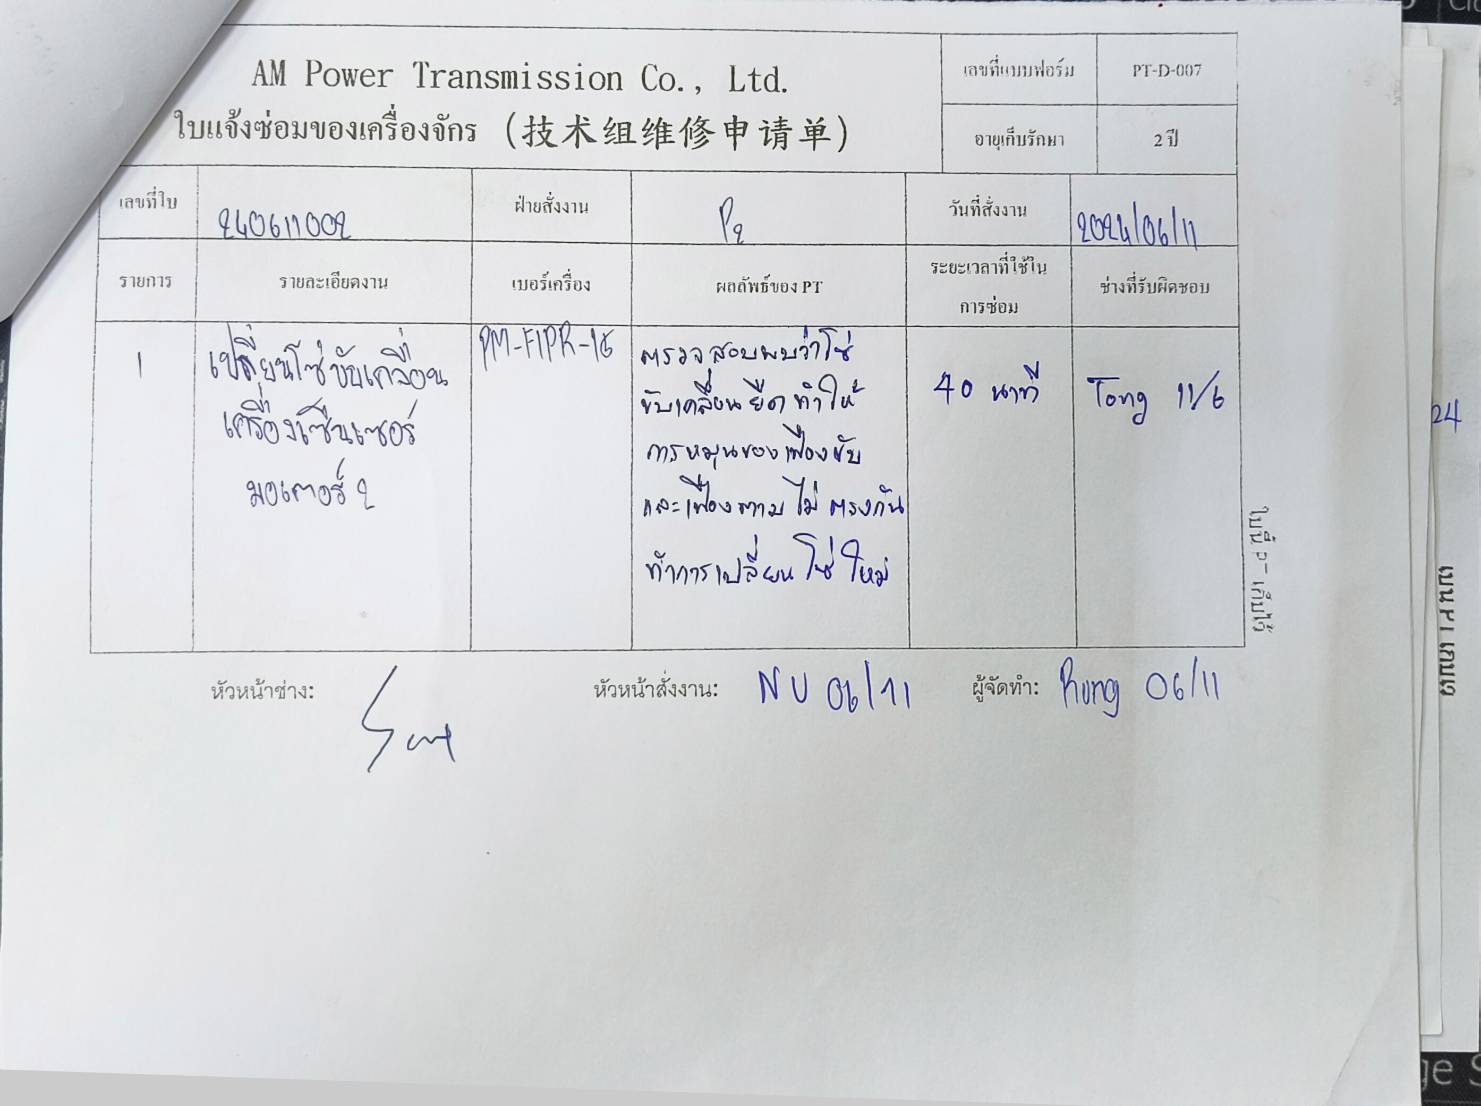 AM Power Transmission Co., Ltd.
ใบแจ้งซ่อมของเครื่องจักร (技术组维修申请单)
เลขที่แบบฟอร์ม PT-D-007
อายุเก็บรักษา 2 ปี
เลขที่ใบ 240611002 ฝ่ายสั่งงาน P2 วันที่สั่งงาน 2024/06/11
รายการ รายละเอียดงาน เบอร์เครื่อง ผลลัพธ์ของ PT ระยะเวลาที่ใช้ใน ช่างที่รับผิดชอบ
การซ่อม
1
เปลี่ยนโซ่ขับเคลื่อน
เครื่องเซ็นเซอร์
มอเตอร์ 2
PM-FIPR-16
ตรวจสอบพบว่าโซ่
ขับเคลื่อนยืดทำให้
การหมุนของเฟืองขับ
และเฟืองตามไม่ตรงกัน
ทำการเปลี่ยนโซ่ใหม่
40 นาที
Tong 11/6
หัวหน้าช่าง:
หัวหน้าสั่งงาน: NU 06/11
ผู้จัดทำ: Rung 06/11
24